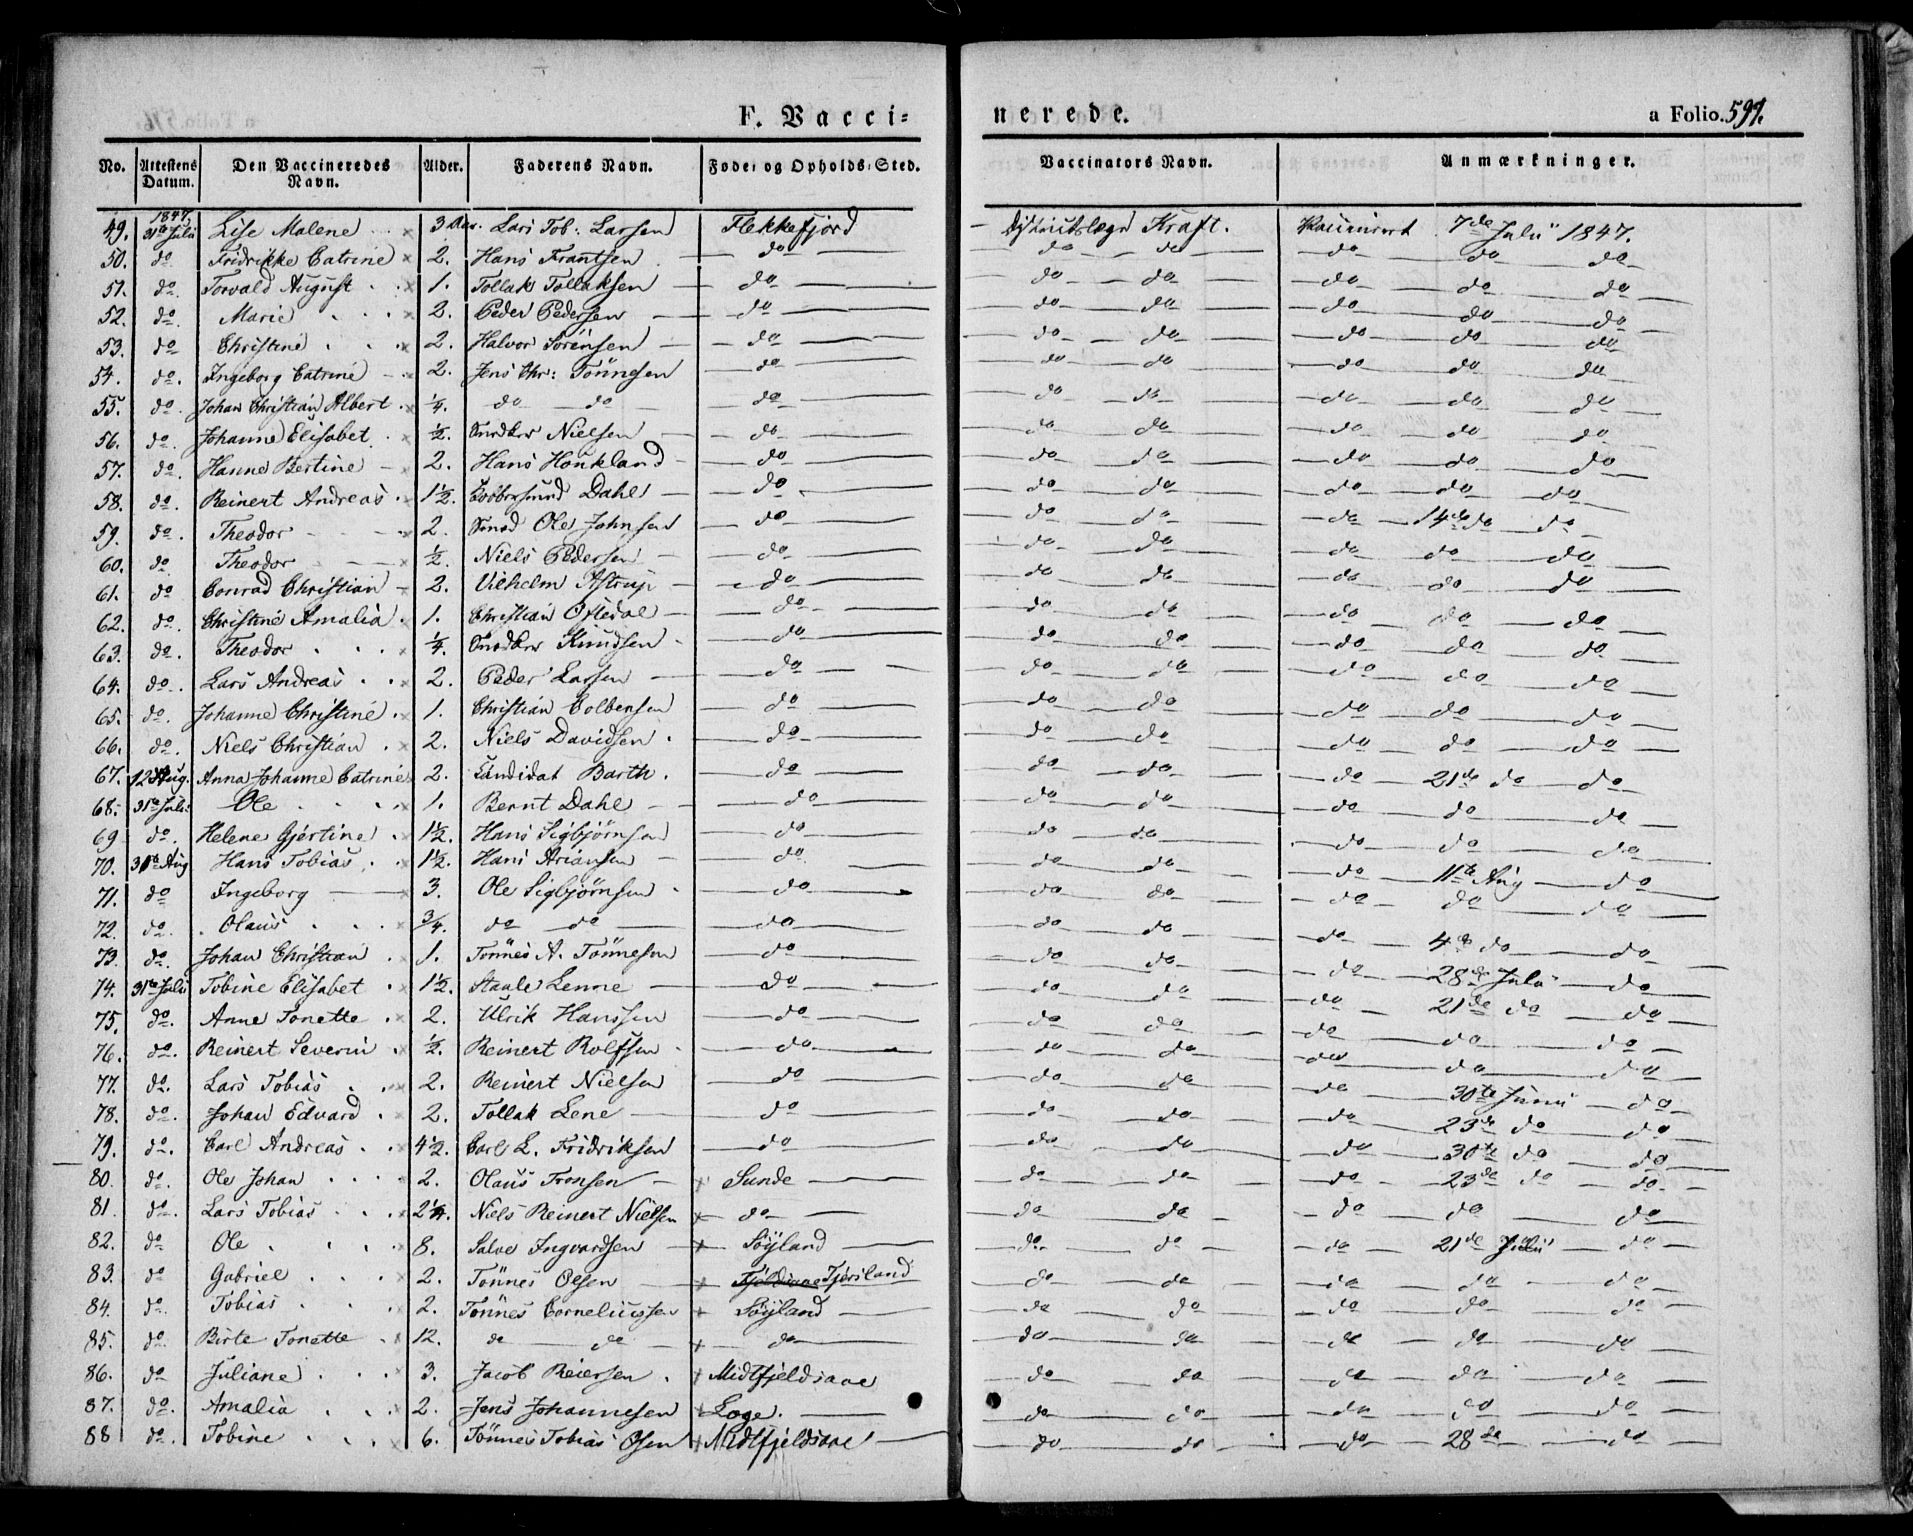 F. Vacci-nerede. a Folio. 597.
No. Attestens Datum. Den Vaccineredes Navn. Alder. Faderens Navn. Føde- og Opholds-Sted. Vaccinators Navn. Anmærkninger.
1847.
49. 31te Juli Lise Malene 3 Lars Tob: Larsen Flekkefjord Kraft. 7de Juli 1847.
50. do Fridrikke Catrine 2. Hans Frantsen do do do do do do
51. do Torvald August 1. Tollak Tollaksen do do do do do do
52. do Marie 2. Peder Pedersen do do do do do do
53. do Christine 2. Halvor Sörensen do do do do do do
54. do. Ingeborg Catrine 2. Jens Chr: Tönnesen do do do do do do
55. do. Johan Christian Albert ¼. do do do do do do do do
56. do. Johanne Elisabet ½. Nielsen do do do do do do
57. do. Hanne Bertine 2. Hans Honkland do do do do do do
58. do. Reinert Andreas 1½. Dahl do do do do do do
59. do. Theodor 2. Ole Johnsen do do do do 14de do do
60. do Theodor ½. Niels Pedersen do do do do do do
61. do Conrad Christian 2. Vilhelm Astrup do do do do do do
62. do. Christine Amalia 1. Christian Ofstedal do do do do do do
63. do. Theodor ¼. Knudsen do do do do do do
64. do. Lars Andreas 2. Peder Larsen do do do do do do
65. do. Johanne Christine 1. Christian Colbensen do do do do do do
66. do. Niels Christian 2. Niels Davidsen do do do do do do
67. 12 Aug. Anna Johanne Catrine 2. Candidat Barth. do do do do 21de do do
68. 31te Juli Ole 1. Bernt Dahl do do do do do do
69 do. Helene Gjertine 1½. Hans Sigbjörnsen do do do do do do
70. 31te Aug Hans Tobias 1½. Hans Ariansen do do do do 11te Aug do
71. do Ingeborg 3. Ole Sigbjörnsen do do do do do do
72. do. Olaus ¾. do do do do do do 4de do do
73. do. Johan Christian 1. Tönnes A. Tönnesen do do do do 28de Juli do
74. 31te Juli Tobine Elisabet 1½. Staale Lenne do do do do 21de do do
75. do. Anne Tonette 2. Ulrik Hanssen do do do do do do
76. do. Reinert Severin ½. Reinert Rolfsen do do do do do do
77. do. Lars Tobias 2. Reinert Nielsen do do do do 30te Juni do
78. do. Johan Edvard 2. Tollak Lene do do do do 23de do do
79. do. Carl Andreas 4½. Carl L. Fridriksen do do do do 30te do do
80. do. Ole Johan 2. Olaus Tronsen Sunde do do do 23de do do
81. do. Lars Tobias 2¼. Niels Reinert Nielsen do do do do do do
82. do Ole 8. Salve Ingvardsen Söyland do. do do 21de Juli do
83. do Gabriel 2. Tönnes Olsen Fjeldsaae Tjorsland do do do do do
84. do. Tobias 2. Tönnes Corneliussen Söyland do do do do do
85. do Birte Tonette 12. do do do do do do do do
86. do Juliane 3. Jacob Reiersen Midtfjeldsaae do do do do do
87. do. Amalia 2. Jens Johannesen Loge. do do do do do
88 do. Tobine 6. Tönnes Tobias Osen Midtfjeldsaae do do do 28de do